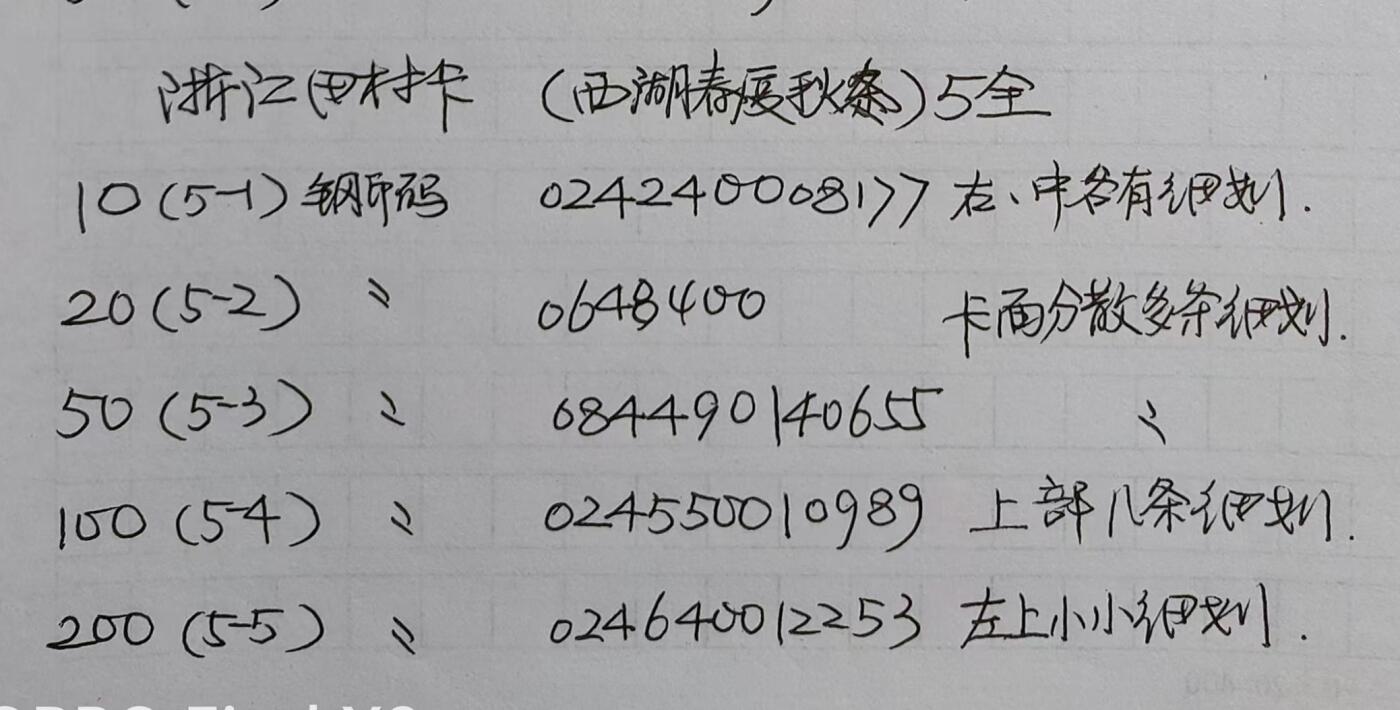 浙江田村卡 (西湖春夏秋冬)5全
10(5-1)钢印码 024240008177 右、中各有细划.
20(5-2) 〃 0648400 卡面分散多条细划.
50(5-3) 〃 084490140655 〃
100(5-4) 〃 024550010989 上部几条细划.
200(5-5) 〃 024640012253 左上小小细划.